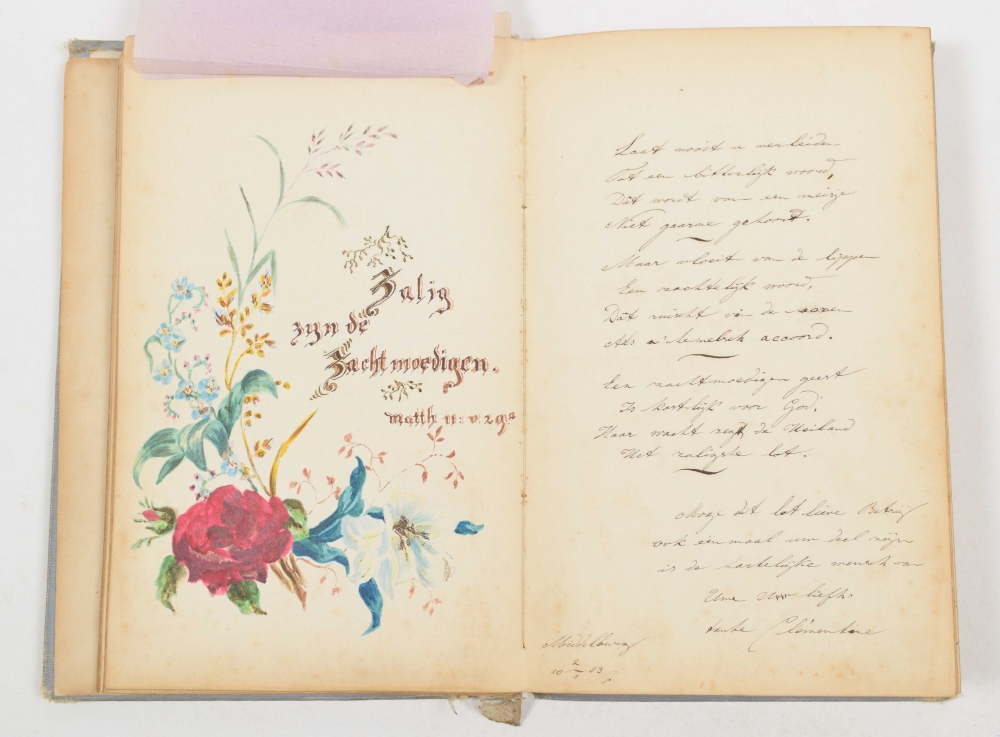 Zalig
zijn de
Zachtmoedigen.
Matth 11: v. 29.
Laat nooit u verleiden
Tot een bitterlijk woord,
Dat wordt van een meisje
Niet gaarne gehoord.
Maar vloeit van de lippen
Een zachtelijk woord,
Dat ruischt in de ooren
Als accoord.
Een zachtmoedigen geest
Is kostlijk voor God,
Haar wacht zegt de Heiland
Het zaligste lot.
Moge dit lot lieve
ook een maal uw deel zijn
is de hartelijke wensch van
Uwe liefh.
tante Clémentine
Middelburg